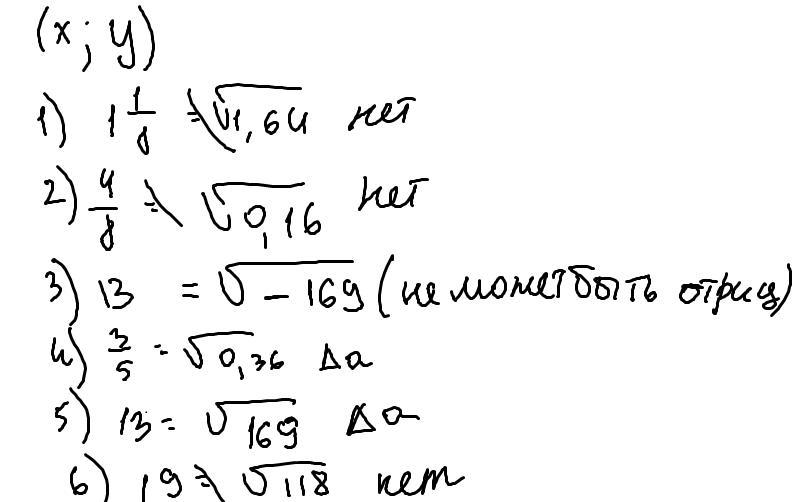 (x; y)
1) 1 1/8 ≠ √1,64 нет
2) 4/8 ≠ √0,16 нет
3) 13 = √-169 (не может быть отриц)
4) 3/5 = √0,36 да
5) 13 = √169 да
6) 19 ≠ √118 нет